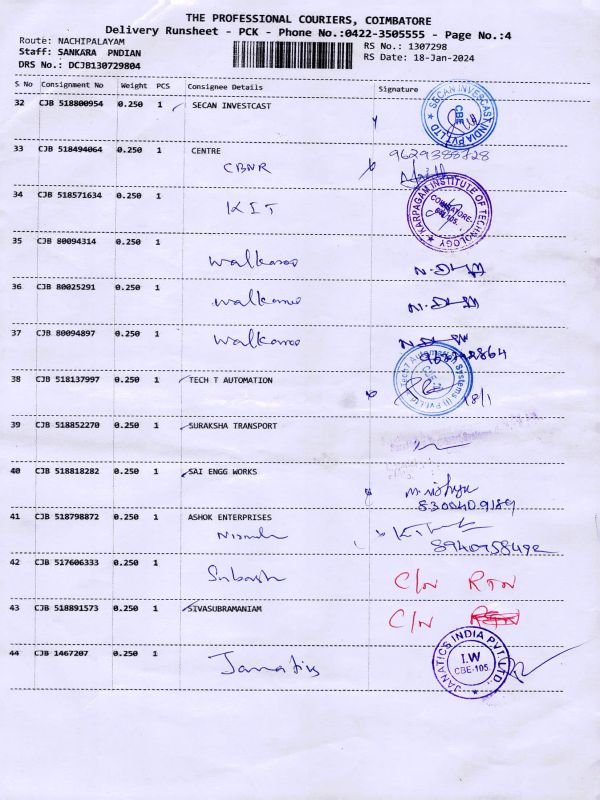 THE PROFESSIONAL COURIERS, COIMBATORE
Delivery Runsheet - PCK - Phone No.:0422-3505555 - Page No.:4
Route: NACHIPALAYAM
RS No.: 1307298
Staff: SANKARA PNDIAN
RS Date: 18-Jan-2024
DRS No.: DCJB130729804
S No Consignment No Weight PCS Consignee Details Signature
32 CJB 518800954 0.250 1 SECAN INVESTCAST
SECAN INVESCAST INDIA PVT LTD CBE
33 CJB 518494064 0.250 1 CENTRE
CBNR
34 CJB 518571634 0.250 1
KIT
KARPAGAM INSTITUTE OF TECHNOLOGY COIMBATORE- 641 105.
35 CJB 80094314 0.250 1
Walkaroo
36 CJB 80025291 0.250 1
Walkaroo
37 CJB 80094897 0.250 1
Walkaroo
38 CJB 518137997 0.250 1 TECH T AUTOMATION
18/1
39 CJB 518852270 0.250 1 SURAKSHA TRANSPORT
40 CJB 518818282 0.250 1 SAI ENGG WORKS
8300409189
41 CJB 518798872 0.250 1 ASHOK ENTERPRISES
42 CJB 517606333 0.250 1
Subash C/N RTN
43 CJB 518891573 0.250 1 SIVASUBRAMANIAM
C/N
44 CJB 1467207 0.250 1
Janatics
JANATICS INDIA PVT. LTD. I.W CBE-105